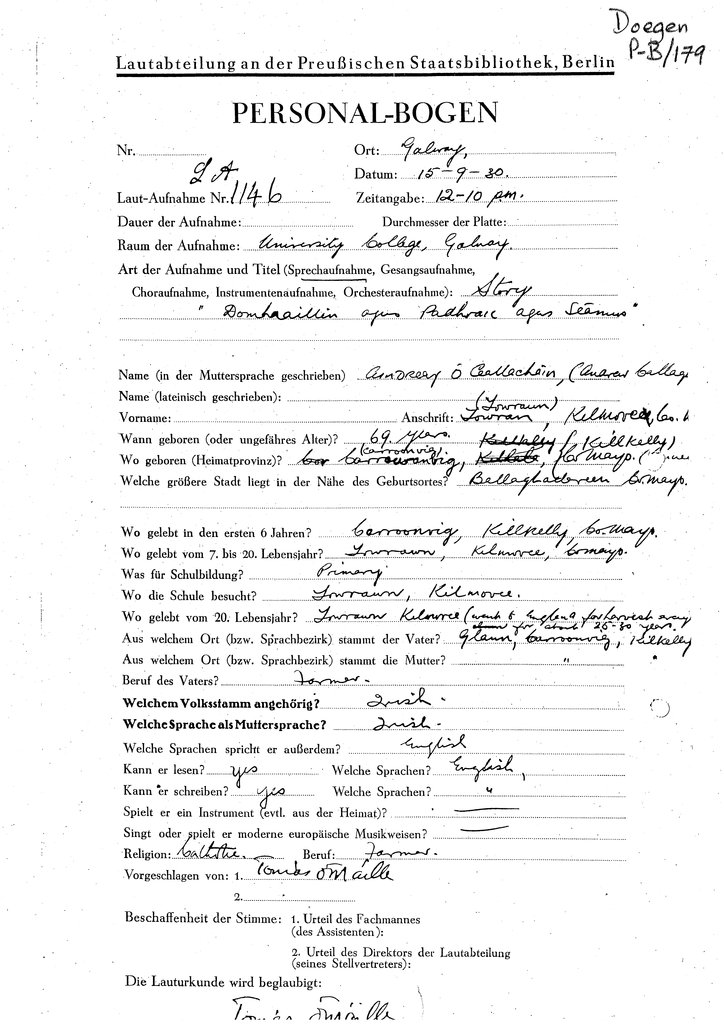 Doegen
P-B/179
Lautabteilung an der Preußischen Staatsbibliothek, Berlin
PERSONAL-BOGEN
Nr. Ort: Galway,
LA Datum: 15-9-30.
Laut-Aufnahme Nr. 1146 Zeitangabe: 12-10 pm.
Dauer der Aufnahme: Durchmesser der Platte:
Raum der Aufnahme: University College, Galway.
Art der Aufnahme und Titel (Sprechaufnahme, Gesangsaufnahme,
Choraufnahme, Instrumentenaufnahme, Orchesteraufnahme): Story
" Domhnaillín agus Pádhraic agus Séamus"
Name (in der Muttersprache geschrieben) Ó Ceallacháin,
Name (lateinisch geschrieben): (Towraun)
Vorname: Anschrift: Towran, Kilmovee, Co.
Wann geboren (oder ungefähres Alter)? 69 years. (Killkelly)
Wo geboren (Heimatprovinz)? Co. Mayo.
Welche größere Stadt liegt in der Nähe des Geburtsortes? Ballaghadereen Co. Mayo.
Wo gelebt in den ersten 6 Jahren? Carroonvig, Killkelly, Co. Mayo.
Wo gelebt vom 7. bis 20. Lebensjahr? Towraun, Kilmovee, Co Mayo.
Was für Schulbildung? Primary
Wo die Schule besucht? Towraun, Kilmovee.
Wo gelebt vom 20. Lebensjahr? Towraun Kilmovee (went to England for harvest every
for about 25-30 years.
Aus welchem Ort (bzw. Sprachbezirk) stammt der Vater? Glann, Carroonvig, Kilkelly
Aus welchem Ort (bzw. Sprachbezirk) stammt die Mutter? " "
Beruf des Vaters? Farmer.
Welchem Volksstamm angehörig? Irish.
Welche Sprache als Muttersprache? Irish.
Welche Sprachen spricht er außerdem? English
Kann er lesen? yes Welche Sprachen? English,
Kann er schreiben? yes Welche Sprachen? "
Spielt er ein Instrument (evtl. aus der Heimat)? —
Singt oder spielt er moderne europäische Musikweisen? —
Religion: Catholic. Beruf: Farmer.
Vorgeschlagen von: 1. Tomás Ó Máille
2.
Beschaffenheit der Stimme: 1. Urteil des Fachmannes
(des Assistenten):
2. Urteil des Direktors der Lautabteilung
(seines Stellvertreters):
Die Lauturkunde wird beglaubigt:
Tomás Ó Máille